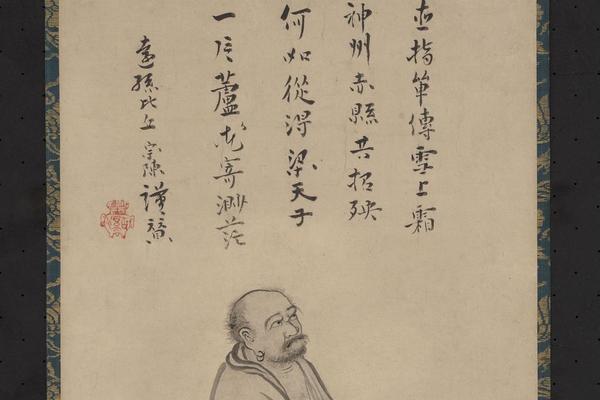 直指單傳雪上霜
神州赤縣共招殃
何如從得梁天子
一片蘆花寄渺茫
遠孫比丘宗 謹